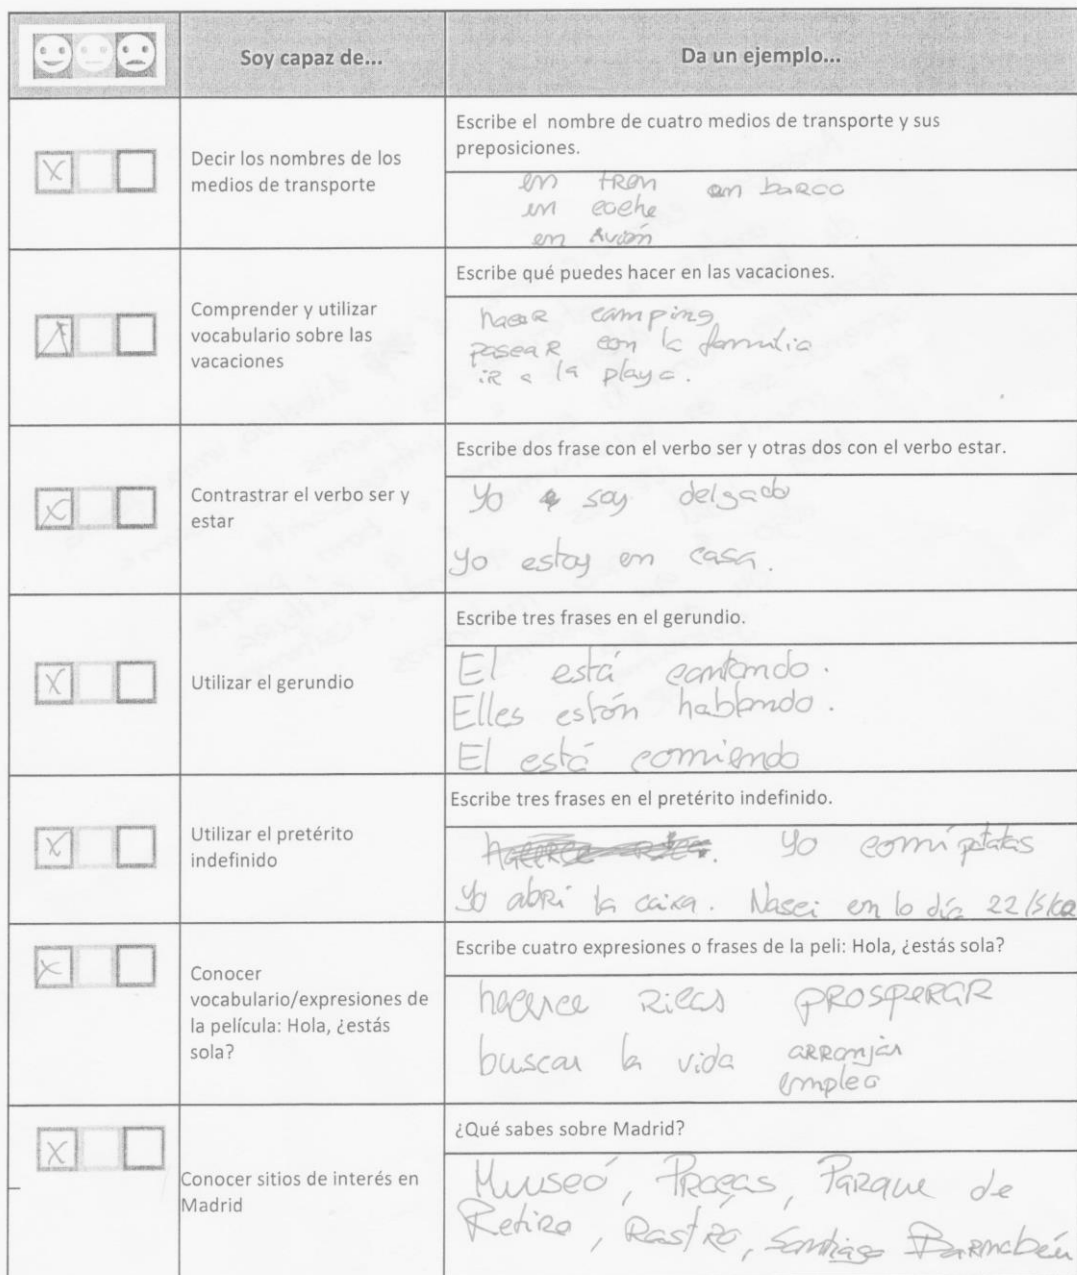 Soy capaz de...
Da un ejemplo...
Decir los nombres de los
medios de transporte
Escribe el nombre de cuatro medios de transporte y sus
preposiciones.
en tren en barco
en coche
en avión
Comprender y utilizar
vocabulario sobre las
vacaciones
Escribe qué puedes hacer en las vacaciones.
hacer camping
pasear con la família
ir a la playa.
Contrastrar el verbo ser y
estar
Escribe dos frase con el verbo ser y otras dos con el verbo estar.
Yo soy delgado
Yo estoy en casa.
Utilizar el gerundio
Escribe tres frases en el gerundio.
El está cantando.
Elles están hablando.
El está comiendo
Utilizar el pretérito
indefinido
Escribe tres frases en el pretérito indefinido.
Yo comí patatas
Yo abri la caixa. Nasci en lo día
Conocer
vocabulario/expresiones de
la película: Hola, ¿estás
sola?
Escribe cuatro expresiones o frases de la peli: Hola, ¿estás sola?
hacerce ricas prosperar
buscar la vida arranjar
empleo
Conocer sitios de interés en
Madrid
¿Qué sabes sobre Madrid?
Museó, Praças, Parque de
Retiro, Rastro, Santiago Barnabéu